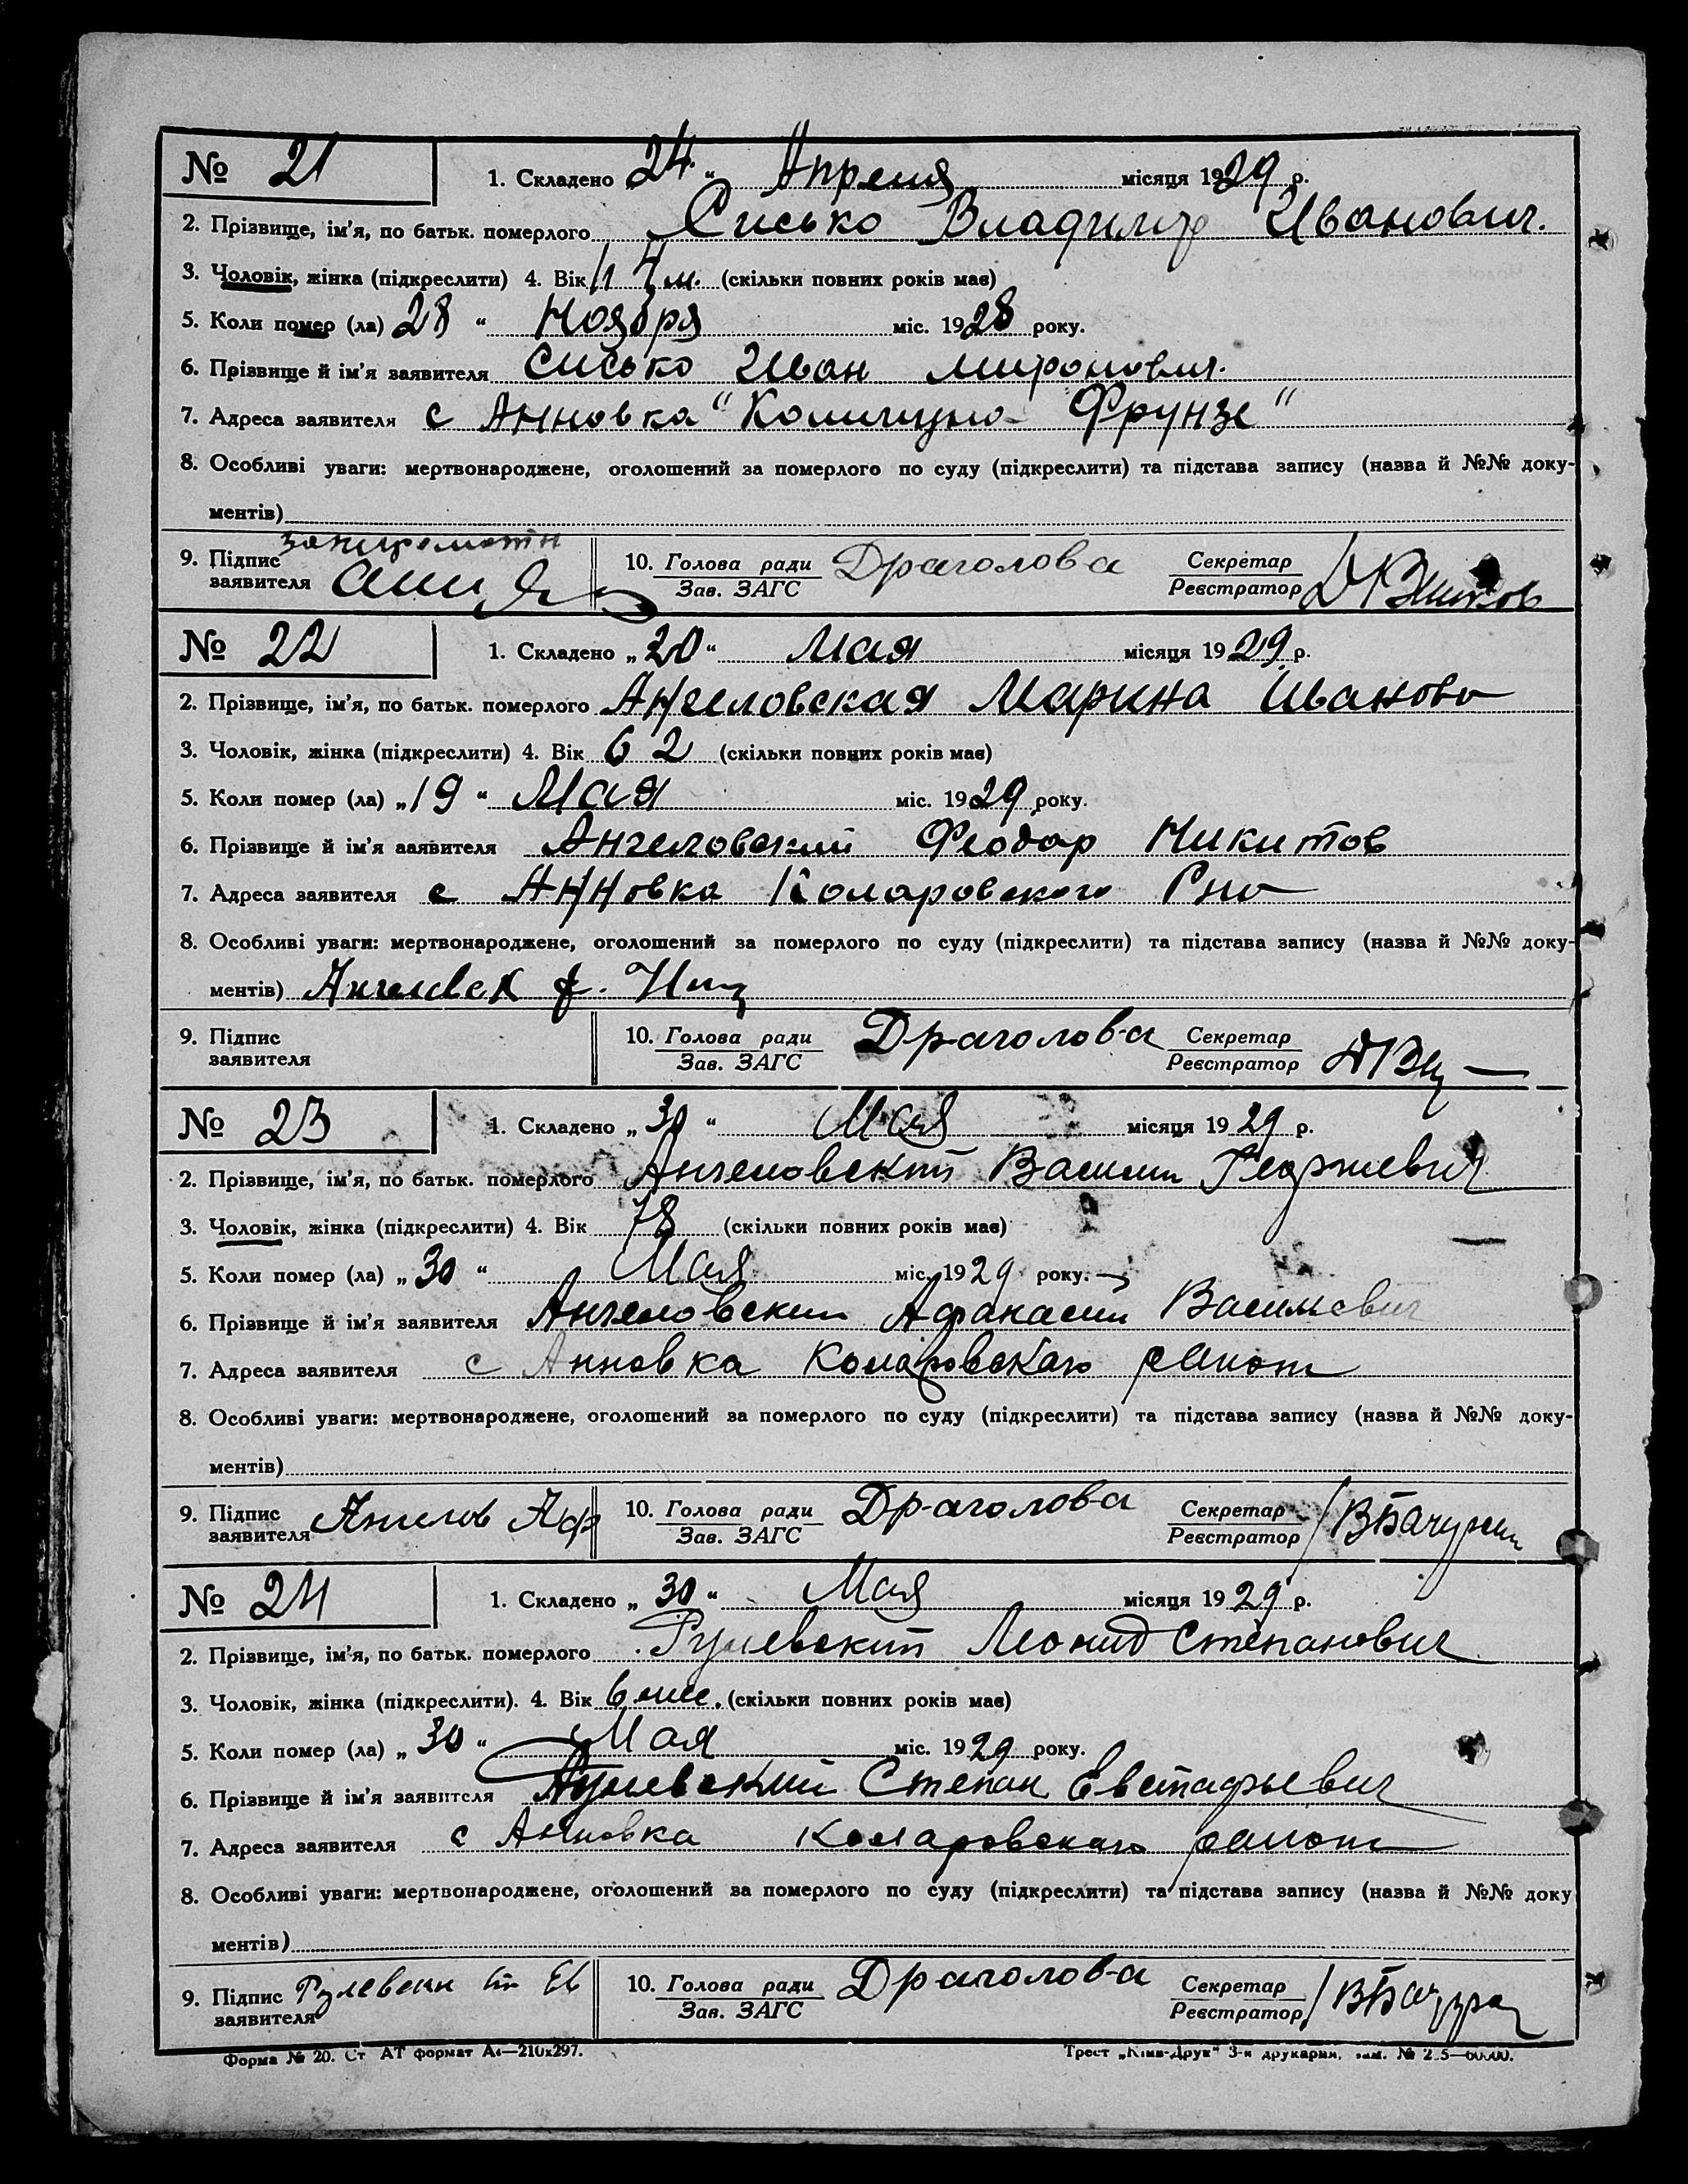 № 21 1. Складено 24 " Апреля місяця 1929 р.
2. Прізвище, ім'я, по батьк. померлого Сисько Владимир Иванович.
3. Чоловік, жінка (підкреслити) 4. Вік м. (скільки повних років має)
5. Коли помер (ла) 28 " Ноября міс. 1928 року.
6. Прізвище й ім'я заявителя Сисько Иван Миронович.
7. Адреса заявителя с Анновка "Фрунзе"
8. Особливі уваги: мертвонароджене, оголошений за померлого по суду (підкреслити) та підстава запису (назва й №№ доку-
ментів)
9. Підпис заявителя
10. Голова ради Зав. ЗАГС Драголова Секретар Реєстратор
№ 22 1. Складено „ 20 " Мая місяця 1929 р.
2. Прізвище, ім'я, по батьк. померлого Ангеловская Марина Иваново
3. Чоловік, жінка (підкреслити) 4. Вік 62 (скільки повних років має)
5. Коли помер (ла) „ 19 " Мая міс. 1929 року.
6. Прізвище й ім'я заявителя Ангеловский Феодор Никитов
7. Адреса заявителя с Анновка Коларовского
8. Особливі уваги: мертвонароджене, оголошений за померлого по суду (підкреслити) та підстава запису (назва й №№ доку-
ментів) Ф.
9. Підпис заявителя
10. Голова ради Зав. ЗАГС Драголова Секретар Реєстратор
№ 23 1. Складено „ 30 " Мая місяця 1929 р.
2. Прізвище, ім'я, по батьк. померлого Ангеловский Василий Георгиевич
3. Чоловік, жінка (підкреслити) 4. Вік 78 (скільки повних років має)
5. Коли помер (ла) „ 30 " Мая міс. 1929 року.
6. Прізвище й ім'я заявителя Ангеловский Афанасий Васильевич
7. Адреса заявителя с Анновка Коларовского
8. Особливі уваги: мертвонароджене, оголошений за померлого по суду (підкреслити) та підстава запису (назва й №№ доку-
ментів)
9. Підпис заявителя Аф
10. Голова ради Зав. ЗАГС Драголова Секретар Реєстратор
№ 24 1. Складено „ 30 " Мая місяця 1929 р.
2. Прізвище, ім'я, по батьк. померлого Рулевский Леонид Степанович
3. Чоловік, жінка (підкреслити). 4. Вік 6 мес. (скільки повних років має)
5. Коли помер (ла) „ 30 " Мая міс. 1929 року.
6. Прізвище й ім'я заявителя Рулевский Степан Евстафьевич
7. Адреса заявителя с Анновка Коларовского
8. Особливі уваги: мертвонароджене, оголошений за померлого по суду (підкреслити) та підстава запису (назва й №№ доку
ментів)
9. Підпис заявителя Ев
10. Голова ради Зав. ЗАГС Драголова Секретар Реєстратор
Форма № 20. Ст АТ формат А4—210х297. Трест „Київ-Друк" 3-я друкарня,